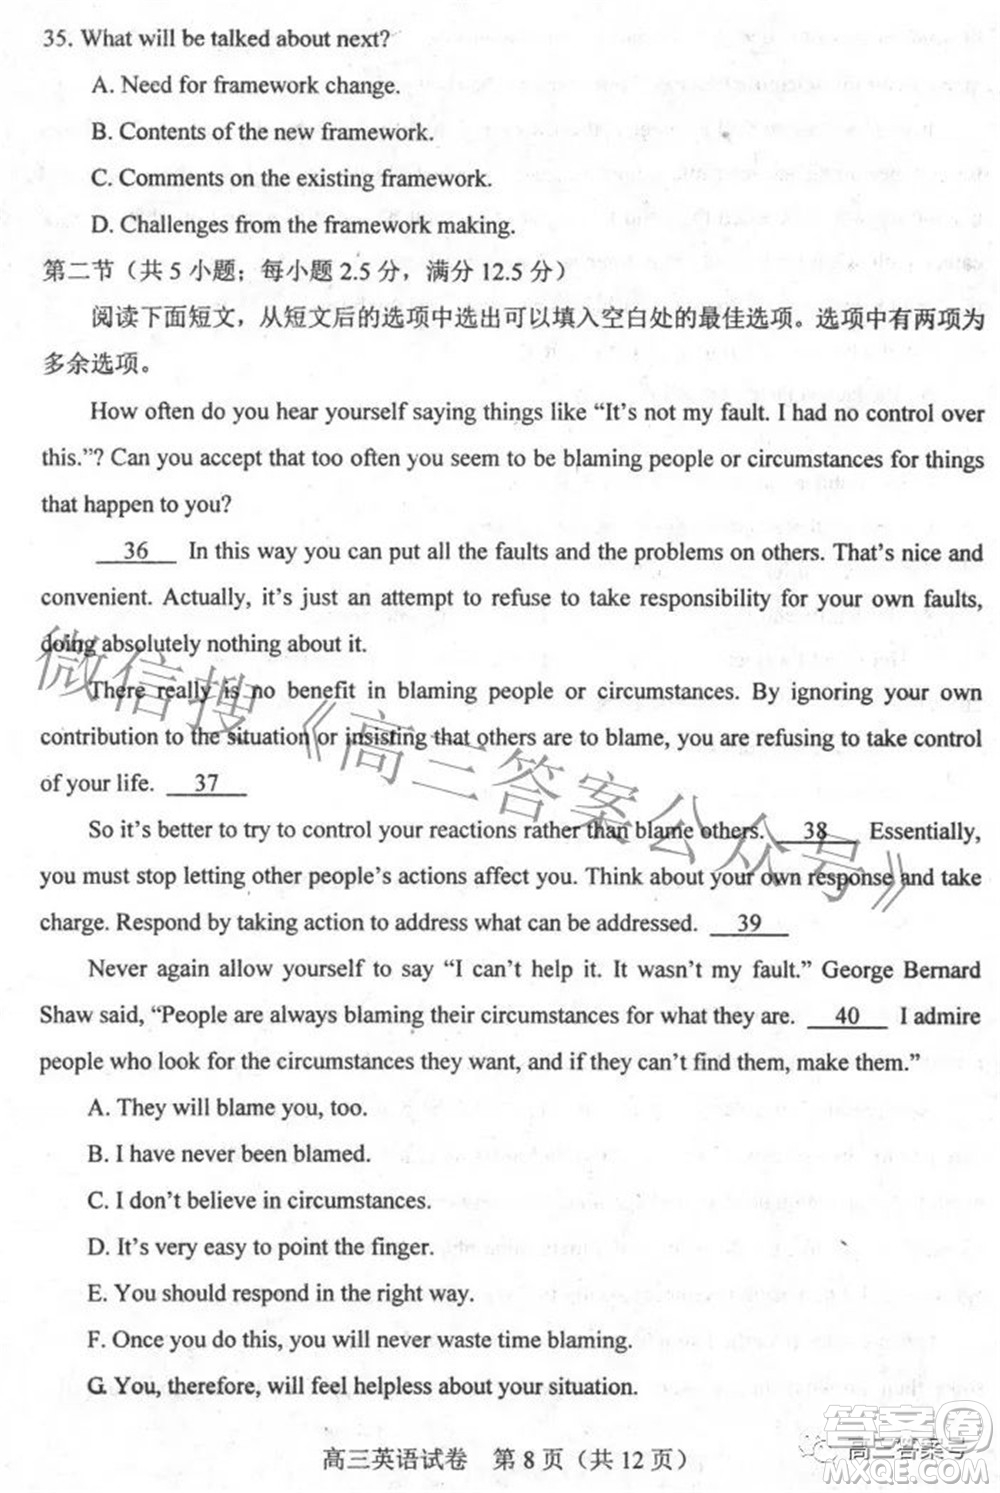 35. What will be talked about next?
A. Need for framework change.
B. Contents of the new framework.
C. Comments on the existing framework.
D. Challenges from the framework making.
第二节（共 5 小题；每小题 2.5 分，满分 12.5 分）
阅读下面短文，从短文后的选项中选出可以填入空白处的最佳选项。选项中有两项为
多余选项。
How often do you hear yourself saying things like “It's not my fault. I had no control over
this.”? Can you accept that too often you seem to be blaming people or circumstances for things
that happen to you?
36 In this way you can put all the faults and the problems on others. That's nice and
convenient. Actually, it's just an attempt to refuse to take responsibility for your own faults,
doing absolutely nothing about it.
There really is no benefit in blaming people or circumstances. By ignoring your own
contribution to the situation or insisting that others are to blame, you are refusing to take control
of your life. 37
So it's better to try to control your reactions rather than blame others. 38 Essentially,
you must stop letting other people's actions affect you. Think about your own response and take
charge. Respond by taking action to address what can be addressed. 39
Never again allow yourself to say “I can't help it. It wasn't my fault.” George Bernard
Shaw said, “People are always blaming their circumstances for what they are. 40 I admire
people who look for the circumstances they want, and if they can't find them, make them.”
A. They will blame you, too.
B. I have never been blamed.
C. I don't believe in circumstances.
D. It's very easy to point the finger.
E. You should respond in the right way.
F. Once you do this, you will never waste time blaming.
G. You, therefore, will feel helpless about your situation.
高三英语试卷 第 8 页（共 12 页）
微信搜《高三答案公众号》
高三答案号
答案圈
MXQE.COM